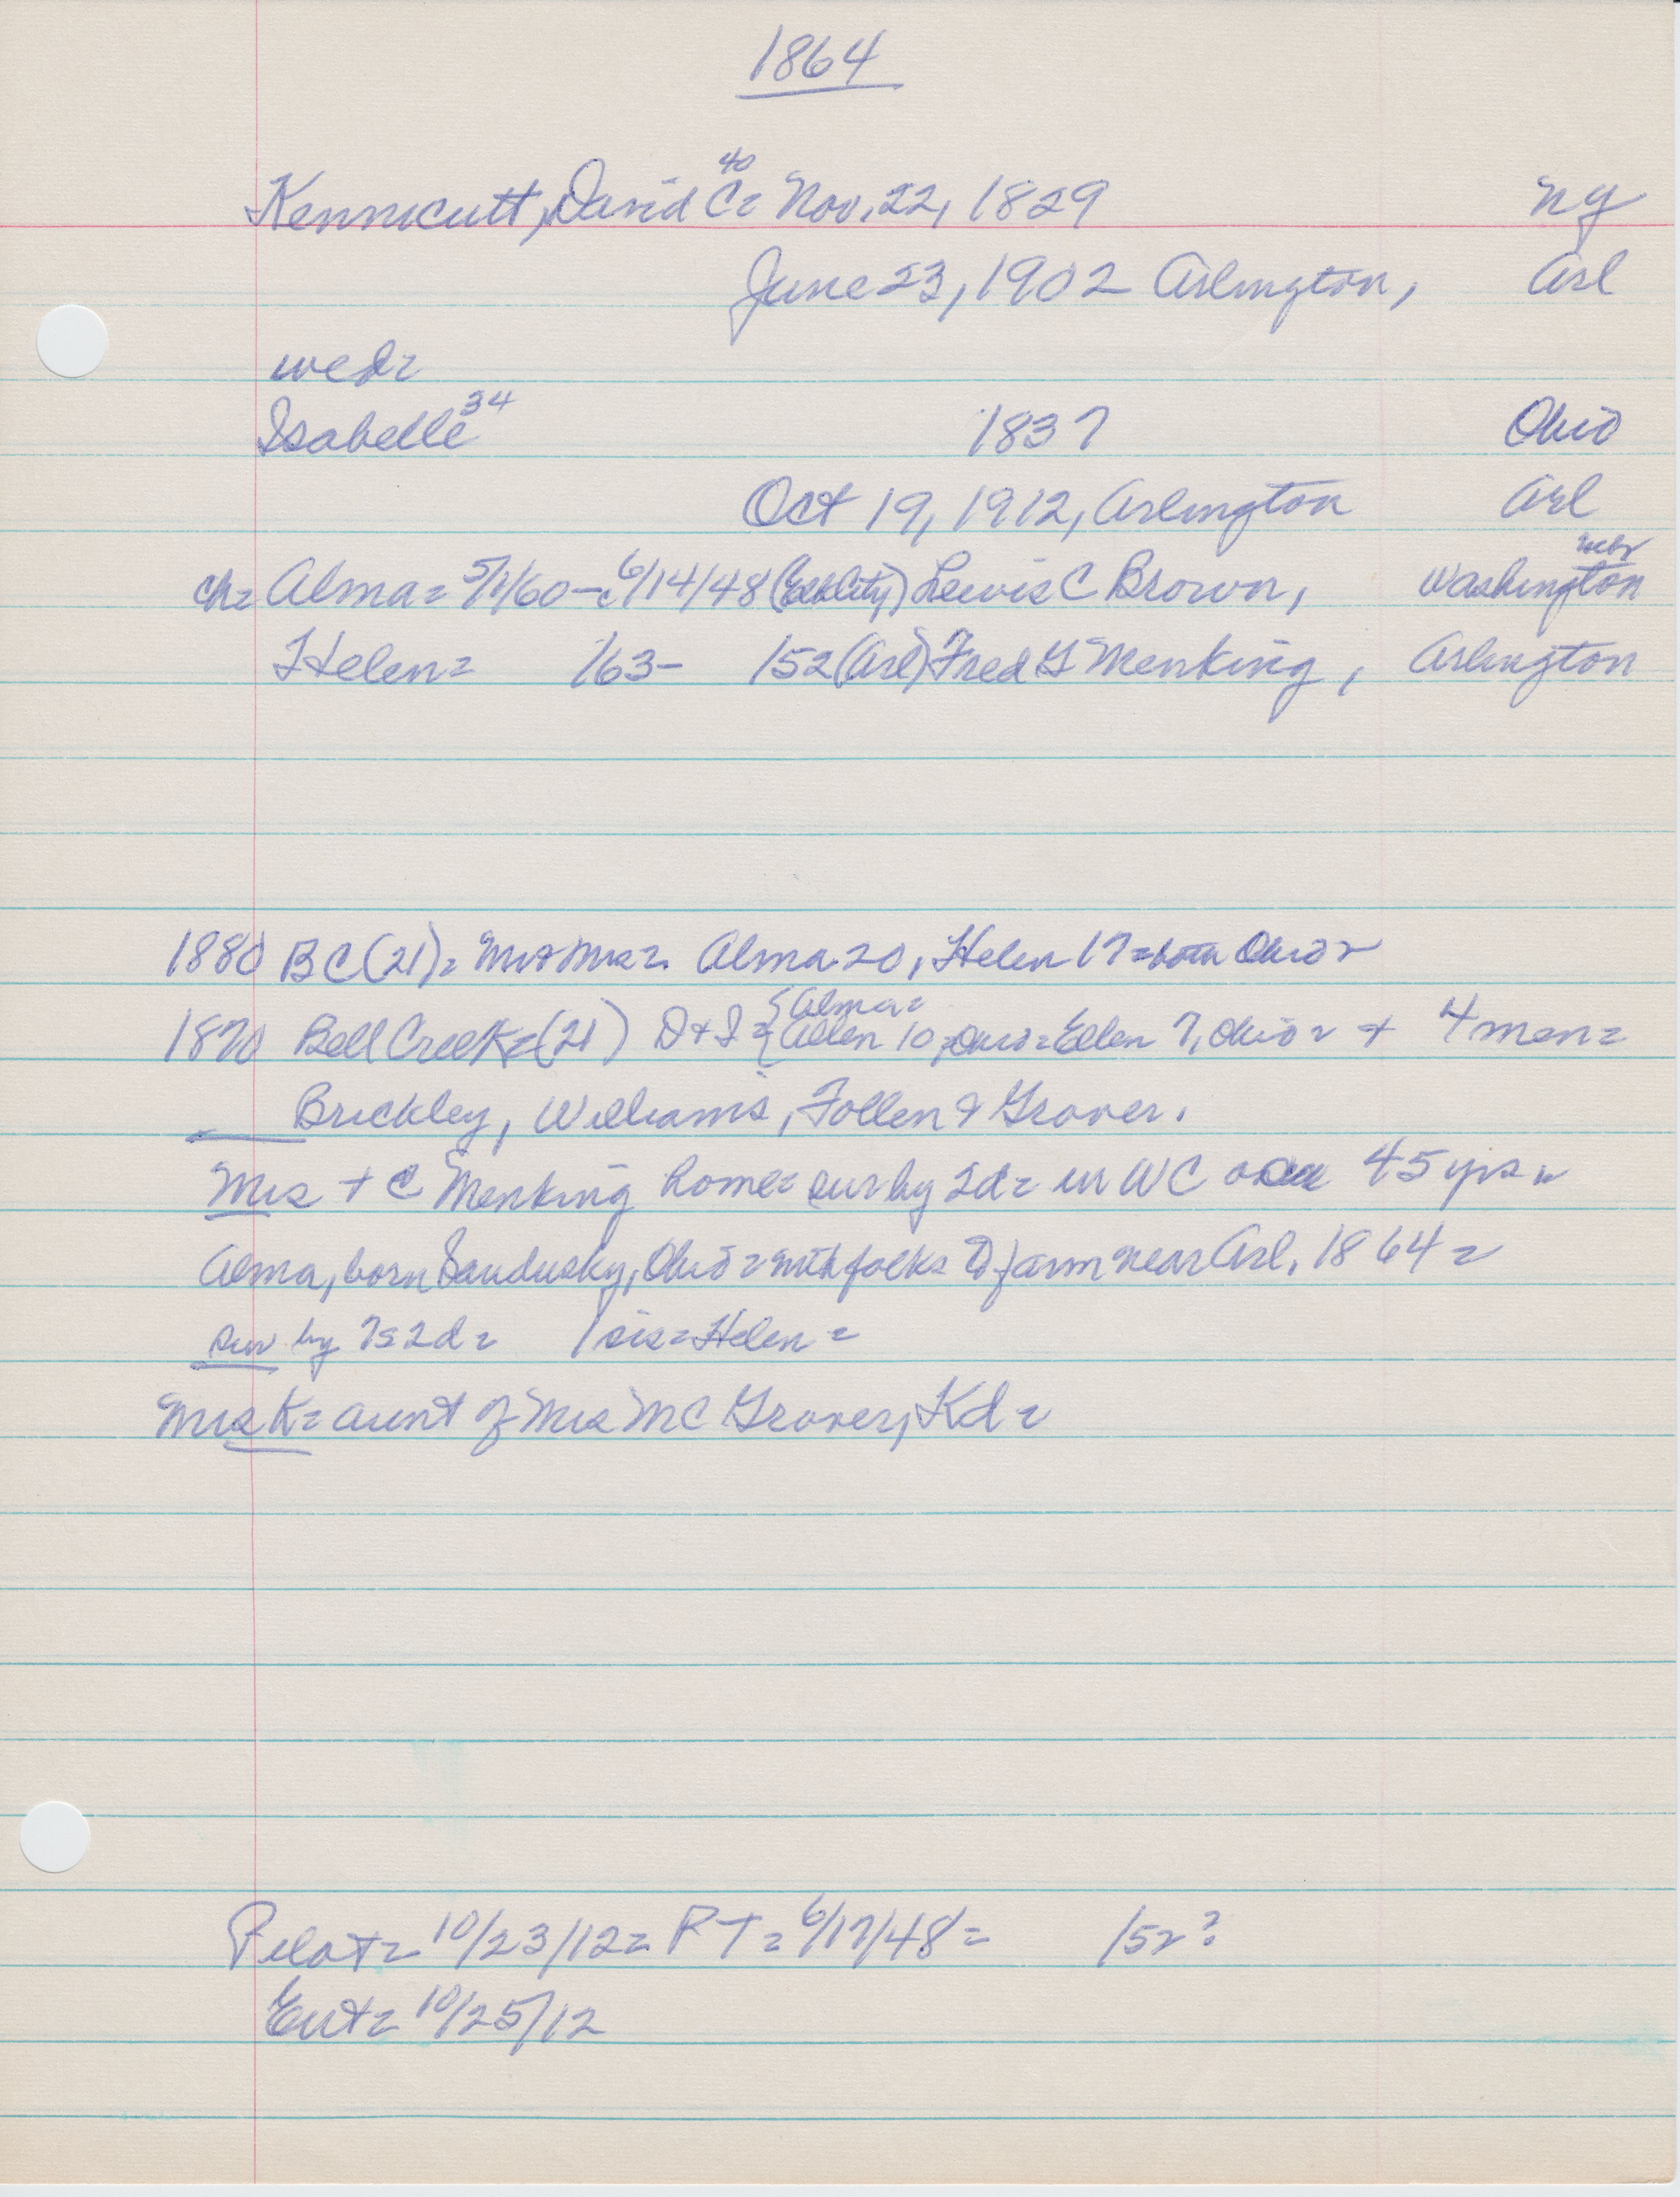 1864
40
Kennicutt, David C= Nov. 22, 1829 NY
June 23, 1902 Arlington, Arl
wed=
Isabelle 34 1837 Ohio
Oct 19, 1912, Arlington Arl
nebr
ch= Alma= 5/1/60 - 6/14/48 Lewis C Brown, Washington
Helen= /63- /52 (Arl) Fred G Menking, Arlington
1880 BC (21)= Mr + Mrs= Alma 20, Helen 17= both Ohio=
Alma=
1870 Bell Creek= (21) D + I = { Allen 10, Ohio= Ellen 7, Ohio= + 4 men=
Brickley, Williams, Follen & Grover.
Mrs + @ Menking home= sur by 2d= in WC over 45 yrs=
Alma, born Sandusky, Ohio= with folks to farm near Arl, 1864=
sur by 7s 2d= 1 sis= Helen=
Mrs K= aunt of Mrs MC Grover, Kd=
Pilot= 10/23/12= PT= 6/17/48= /52?
Ent= 10/25/12